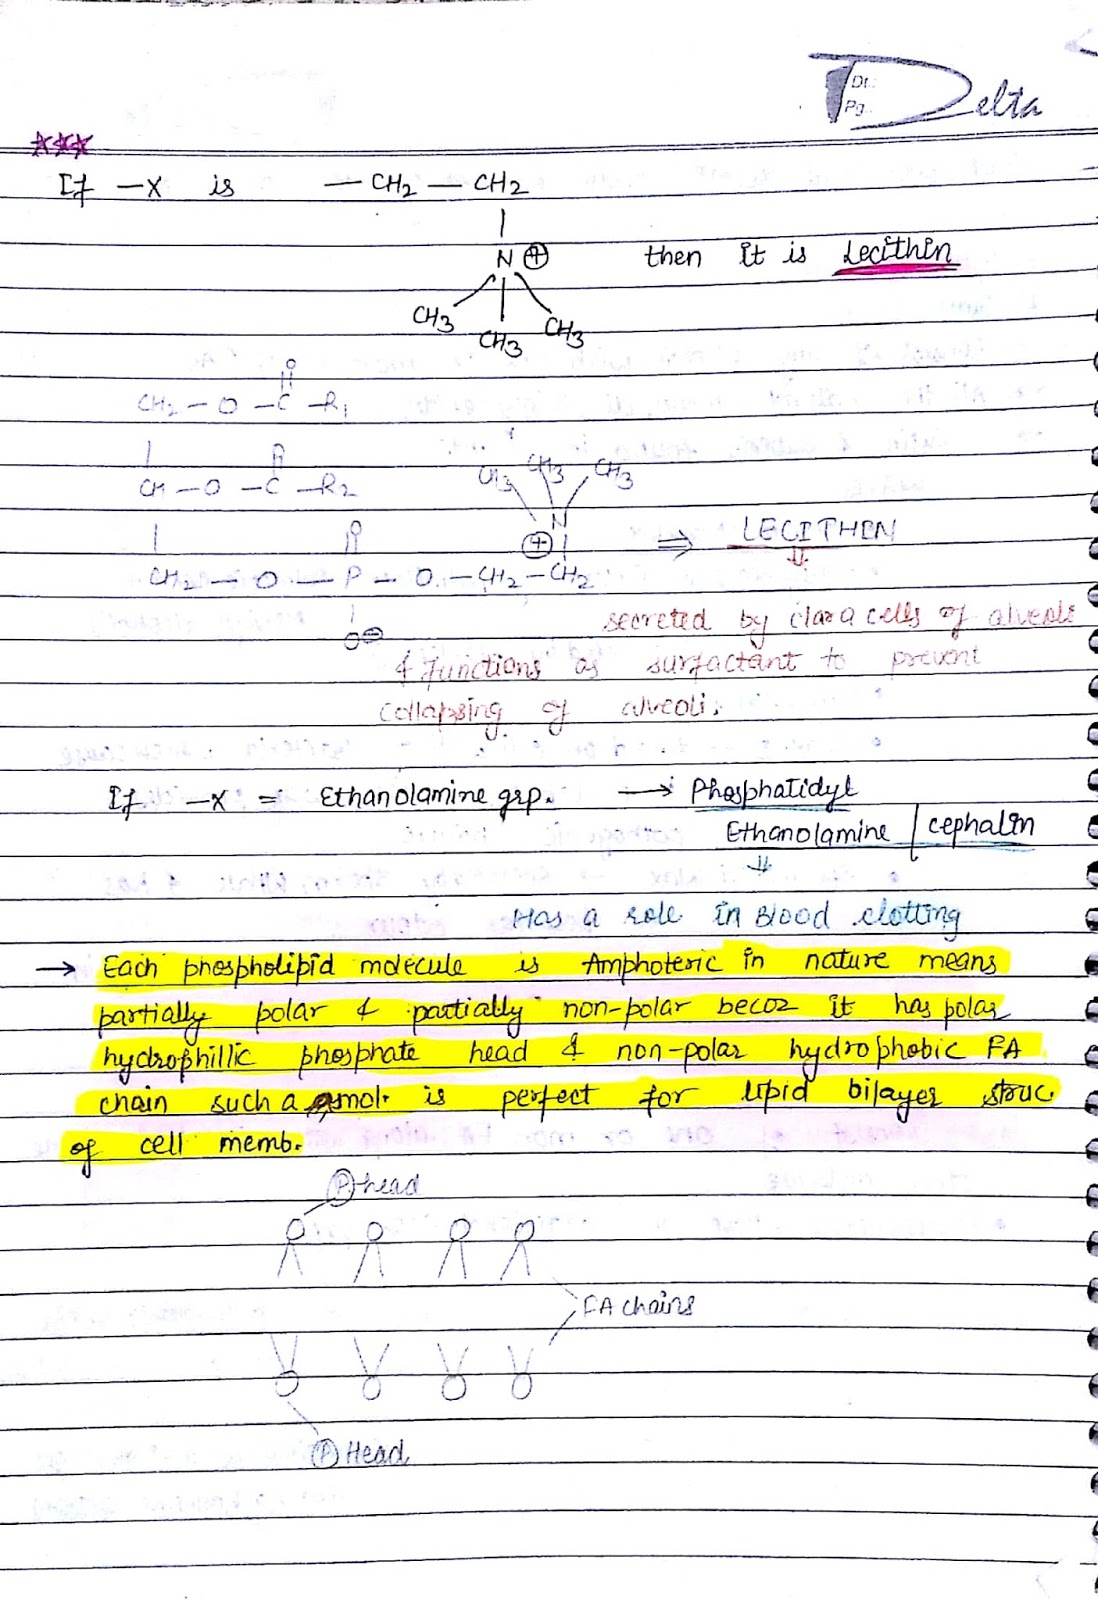 Dt.:
Pg.:
Delta
If —X is — CH2 — CH2
N ⊕ then it is Lecithin
CH3 CH3 CH3
O
CH2 — O — C — R1
O
CH — O — C — R2
CH3 CH3 CH3
N
O ⊕ ⇒ LECITHIN
CH2 — O — P — O — CH2 — CH2
O⊖
secreted by clara cells of alveoli
& functions as surfactant to prevent
collapsing of alveoli.
If —X = Ethanolamine grp. → Phosphatidyl
Ethanolamine / cephalin
Has a role in Blood clotting
→ Each phospholipid molecule is Amphoteric in nature means
partially polar & partially non-polar becoz it has polar
hydrophillic phosphate head & non-polar hydrophobic FA
chain such a mol. is perfect for lipid bilayer struc.
of cell memb.
P head
FA chains
P Head